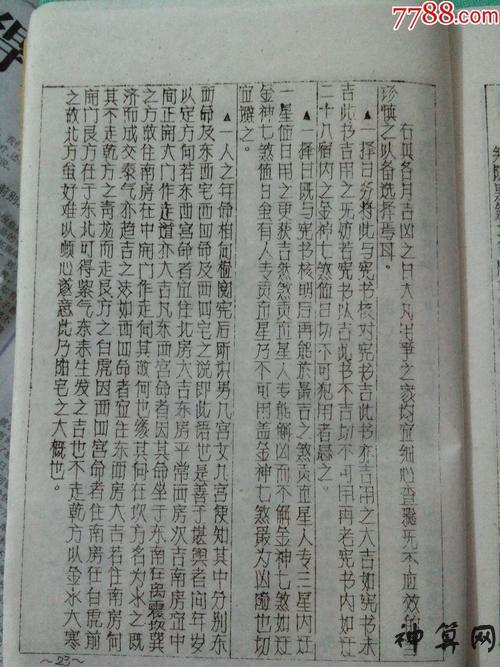 7788.com
右具各月吉凶之日大凡出事之家均宜细心查
诊慎之以备选择焉耳。
▲一择日务将此与宪书核对宪书吉此书亦吉用之大吉如宪书未
吉此书吉用之无妨若宪书以吉此书不吉切不可用再若宪书内如迂
二十八宿内之金神七煞值日切不可犯用者忌之。
▲一择日既与宪书核明后再能於最吉之煞贡宜星人专三星内迂
一星值日用之更获吉煞煞贡直星人专能解凶而不解金神七煞如迂
金神七煞值日金有人专贡直星乃不可用盖金神七煞最为凶险也切
宜避之。
▲一人之年命相何检阅宪后所识男九宫女九宫便知其中分别东
四命及东西宅西四命及西四宅之说即此谱也是善于堪舆者问年岁
以定方向若东四宫命者宜住北房大吉东房平常西房次吉南房宜中
间正南大门作走道亦大吉凡东西宫命者因其命坐于东南
之方故住南房在中南门作走何其故何也缘其何在坎方名为水之既
济而成交泰气亦趋吉之法如西四命者宜住东西房大吉若住南房何
其不走乾方之青龙而走艮方之白虎因西四宫命者住南房在白虎前
南门艮方在于东北可得紫气东来生发之吉也不走乾方以金水大寒
之故北方虽好难以顺心遂意此乃阳宅之大概也。
～23～
神算网